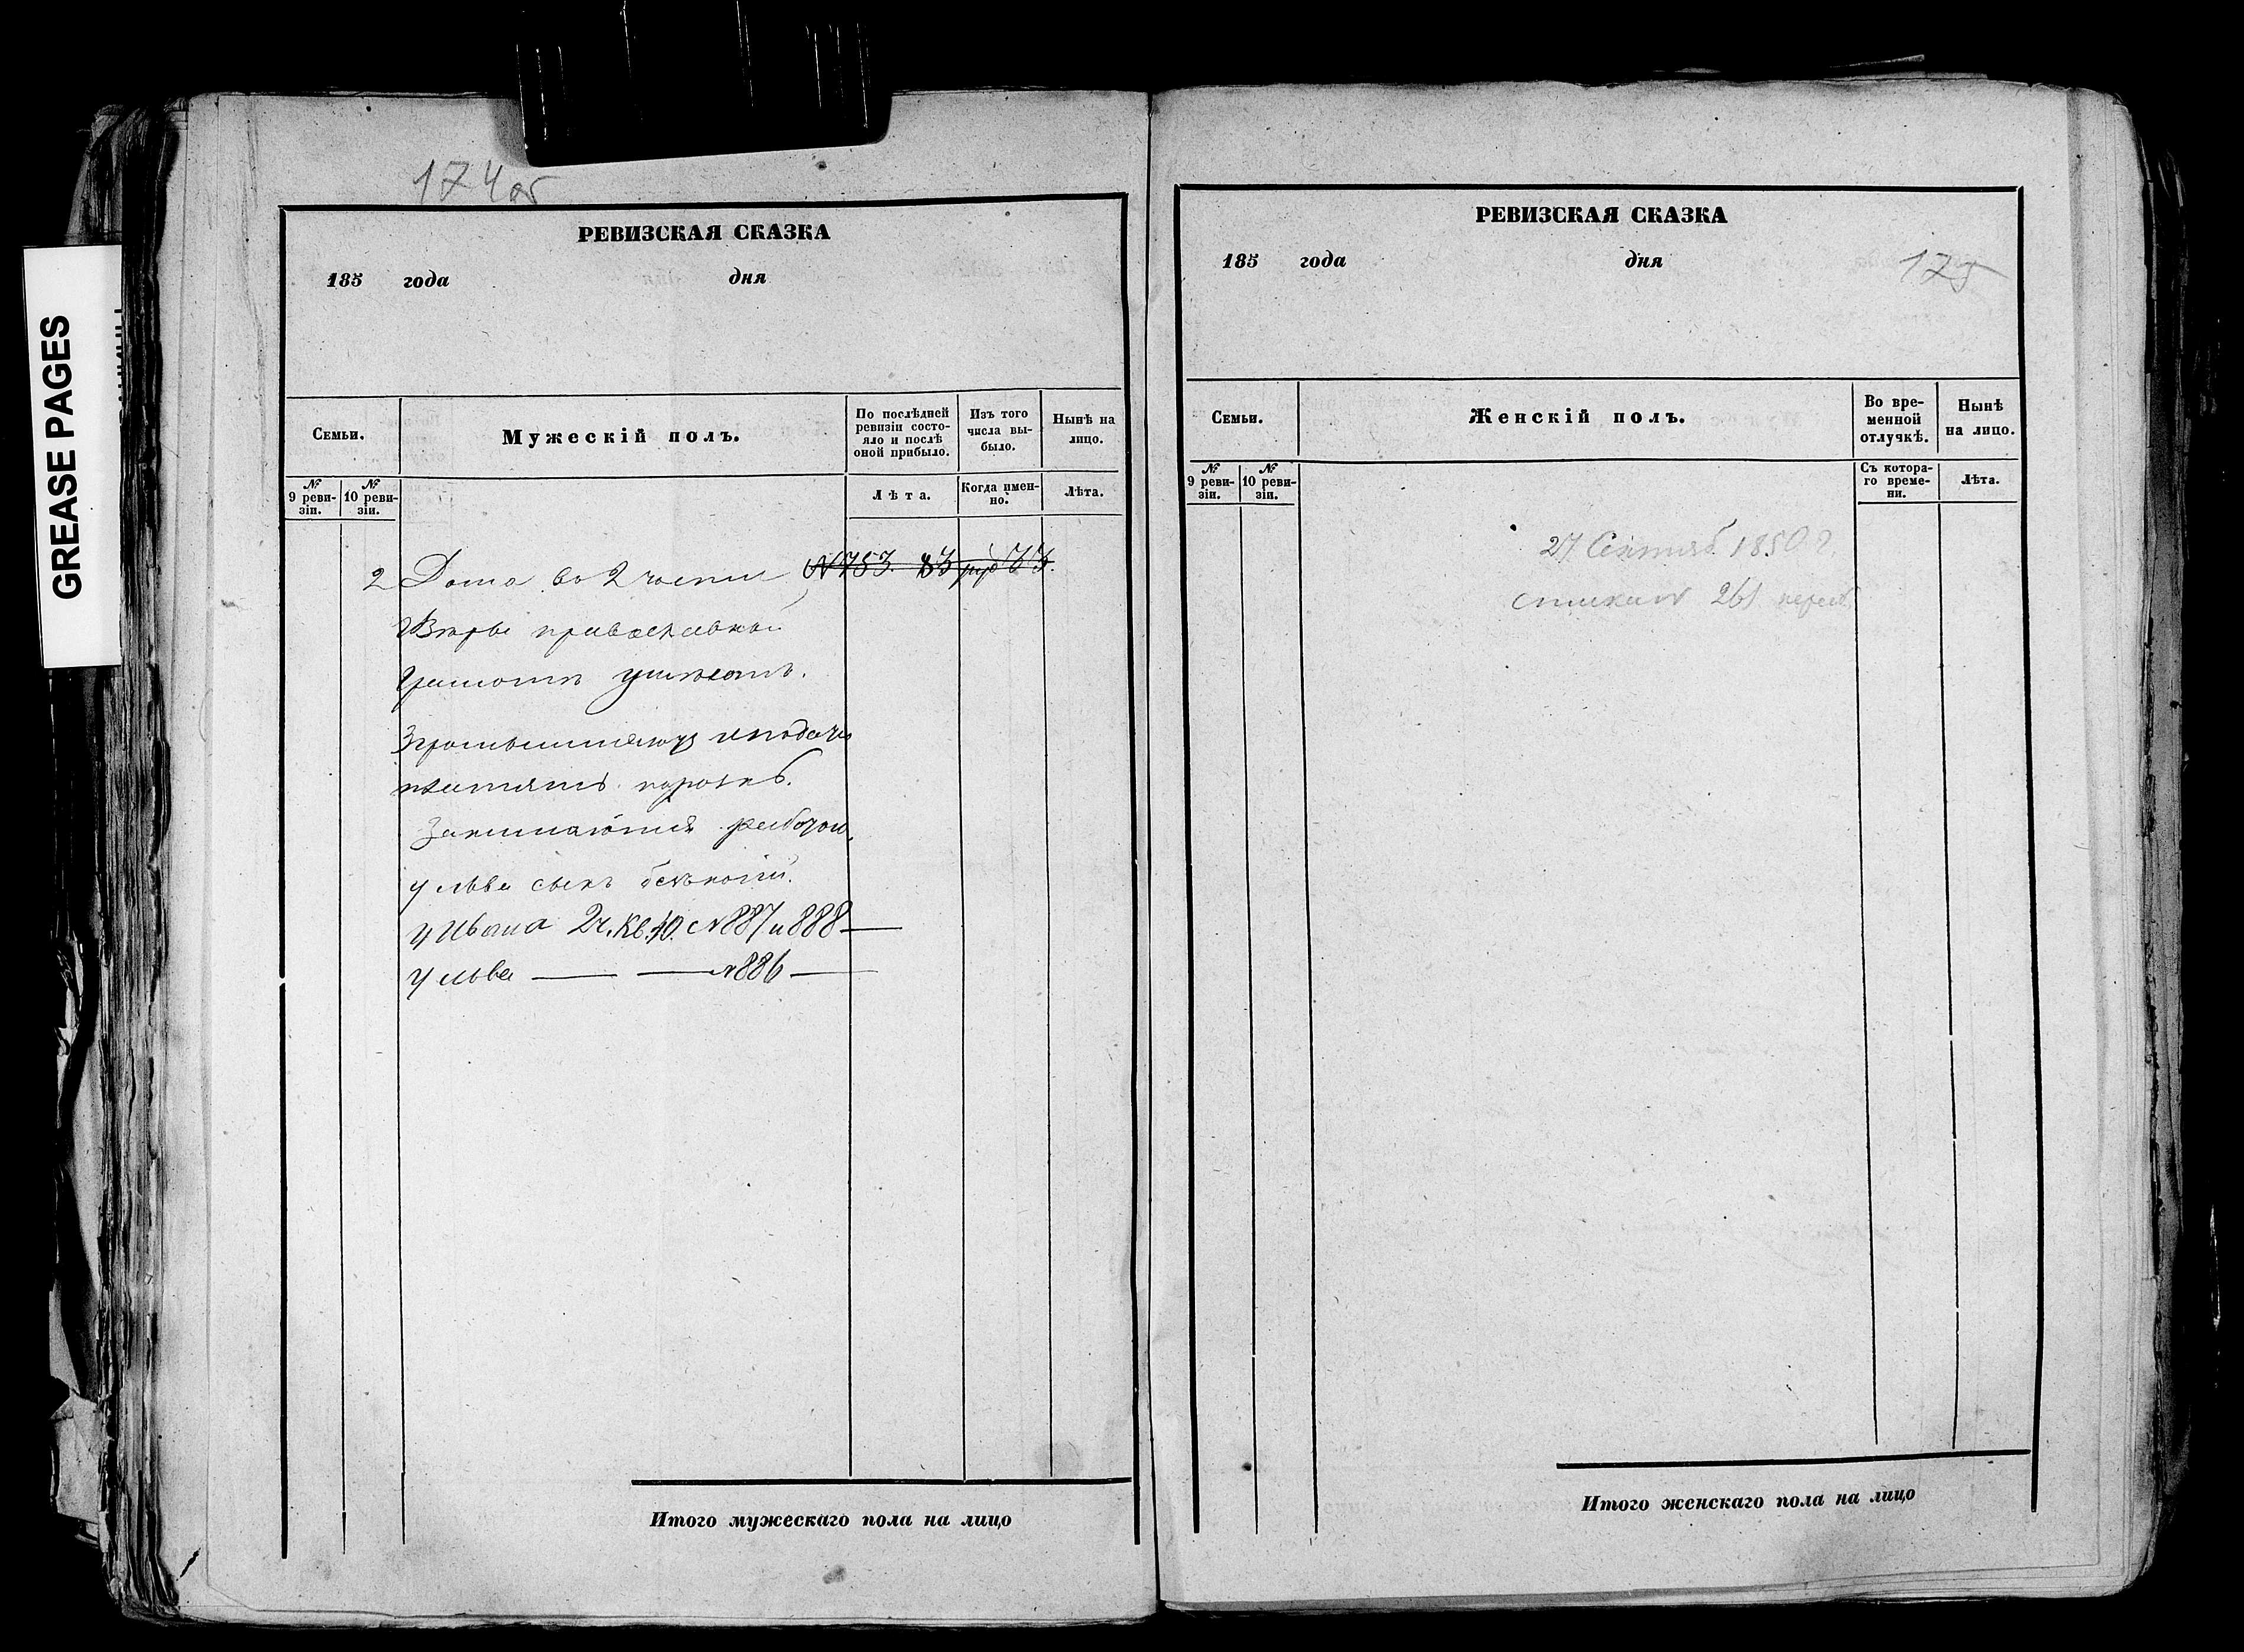 GREASE PAGES
174об
РЕВИЗСКАЯ СКАЗКА
185 года дня
Семьи.
Мужескій полъ.
По послѣдней ревизіи состояло и послѣ оной прибыло.
Изъ того числа выбыло.
Нынѣ на лицо.
№ 9 ревизіи.
№ 10 ревизіи.
Лѣта.
Когда именно.
Лѣта.
2 Дома во 2 части №753. 83 руб 33.
Вѣры православной
Грамотѣ умѣютъ.
платятъ порознь.
Занимаются
у Льва сынъ
у Ивана 2ч. Кв. 40. №887 и 888
у Льва — — №886 —
Итого мужескаго пола на лицо
РЕВИЗСКАЯ СКАЗКА
185 года дня
175
Семьи.
Женскій полъ.
Во временной отлучкѣ.
Нынѣ на лицо.
№ 9 ревизіи.
№ 10 ревизіи.
Съ котораго времени.
Лѣта.
27 Сентяб. 1850 г.
261
Итого женскаго пола на лицо